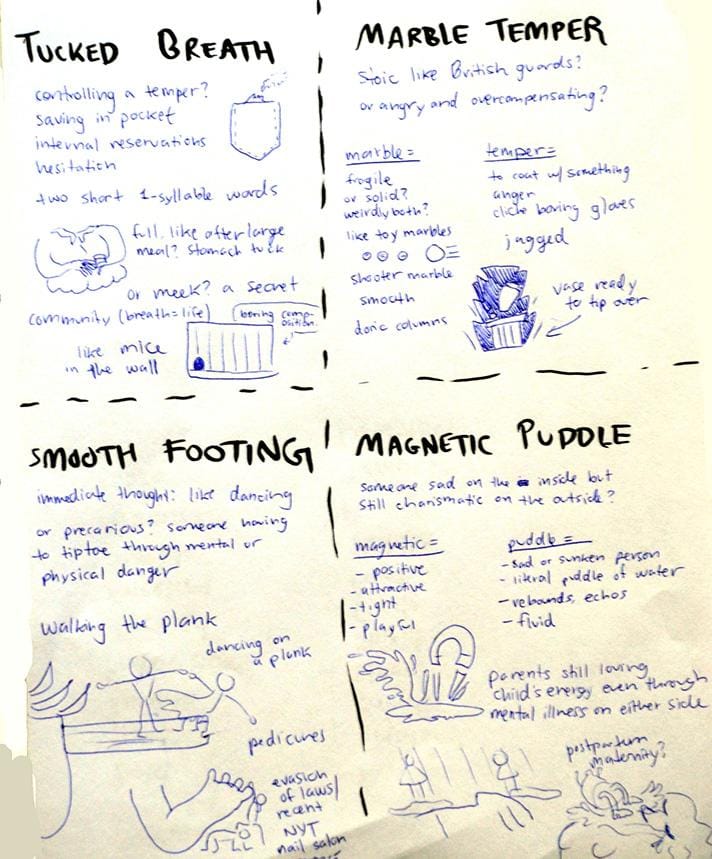 TUCKED BREATH
controlling a temper?
saving in pocket
internal reservations
hesitation
two short 1-syllable words
full. like after large
meal? stomach tuck
or meek? a secret
community (breath = life)
boring comp-
osition.
like mice
in the wall
MARBLE TEMPER
Stoic like British guards?
or angry and overcompensating?
marble =
fragile
or solid?
weirdly both?
like toy marbles
shooter marble
smooth
doric columns
temper =
to coat w/ something
anger
cliche boxing gloves
jagged
vase ready
to tip over
SMOOTH FOOTING
immediate thought: like dancing
or precarious? someone having
to tiptoe through mental or
physical danger
walking the plank
dancing on
a plank
pedicures
evasion
of laws/
recent
NYT
nail salon
MAGNETIC PUDDLE
someone sad on the inside but
still charismatic on the outside?
magnetic =
- positive
- attractive
- tight
- playful
puddle =
- sad or sunken person
- literal puddle of water
- rebounds, echos
- fluid
parents still loving
child's energy even through
mental illness on either side
postpartum
maternity?